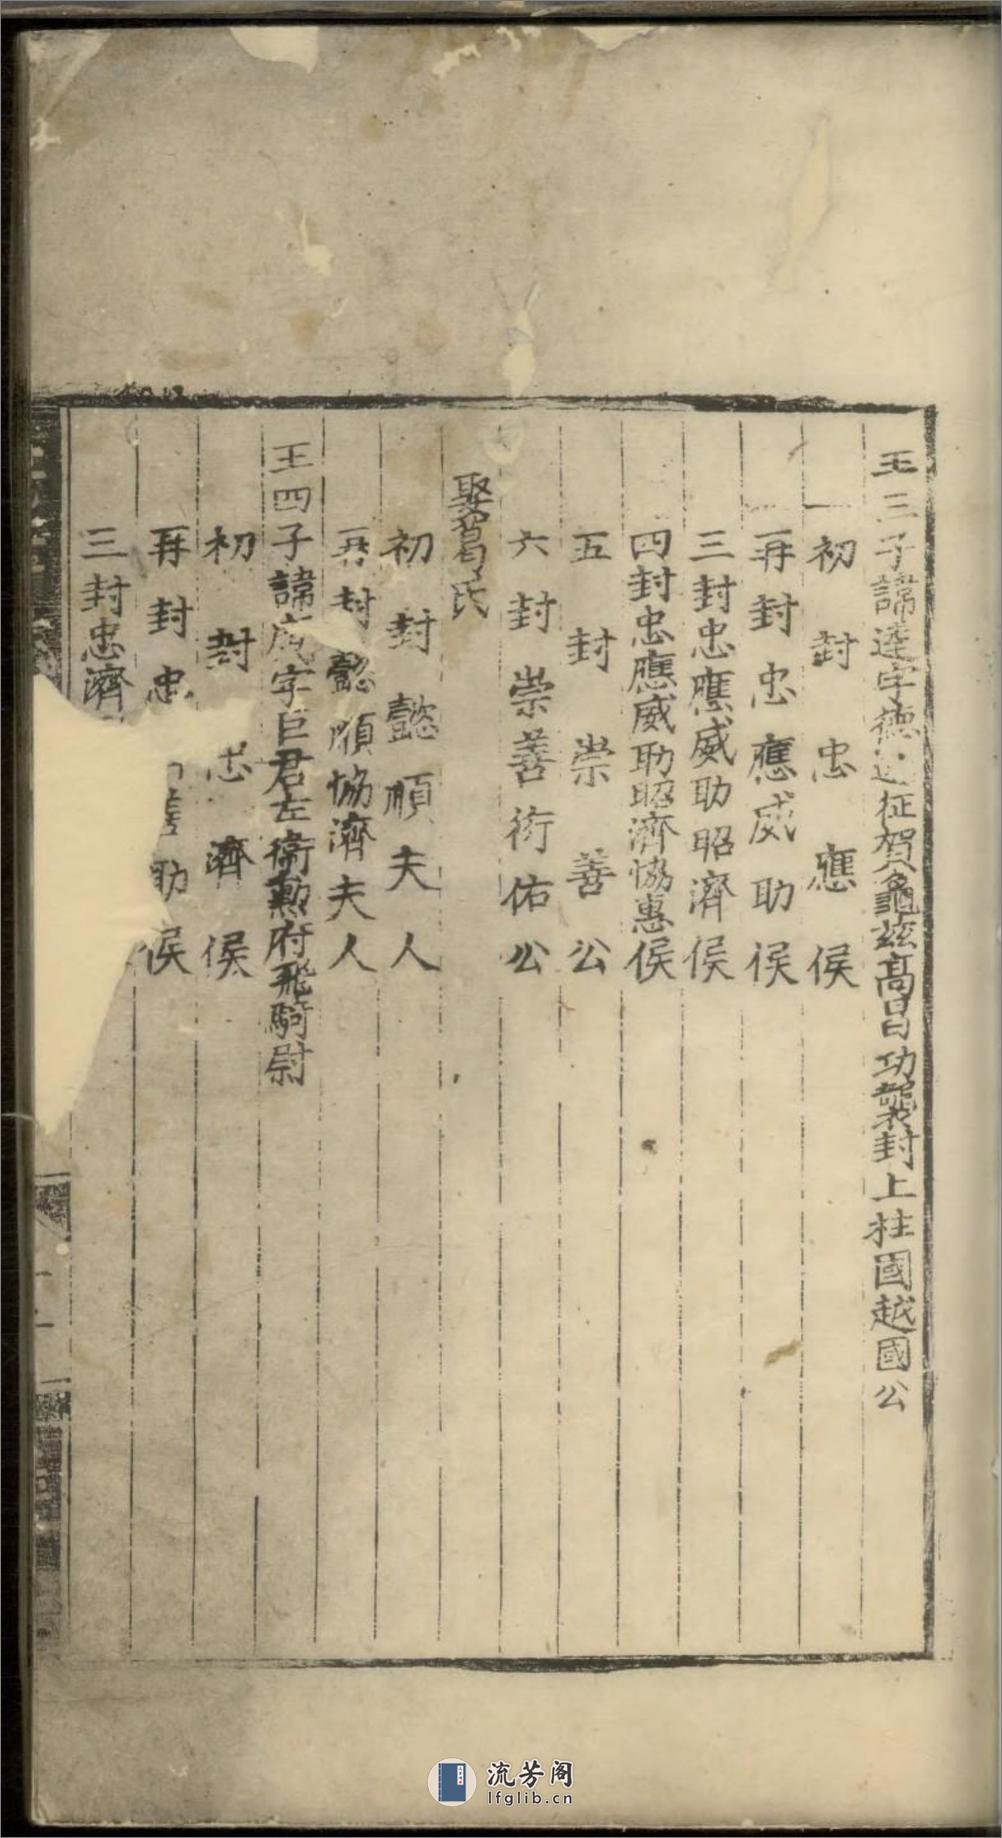 王三子諱達字德達征賀龜茲高昌功襲封上柱國越國公
初封忠應侯
再封忠應威助侯
三封忠應威助昭濟侯
四封忠應威助昭濟協惠侯
五封崇善公
六封崇善衍佑公
娶葛氏
初封懿順夫人
再封懿順協濟夫人
王四子諱廣字巨君左衞勳府飛騎尉
初封忠濟侯
再封忠 善助侯
三封忠濟
流芳阁
lfglib.cn